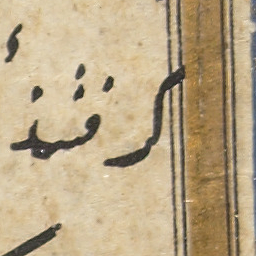 کرفتند